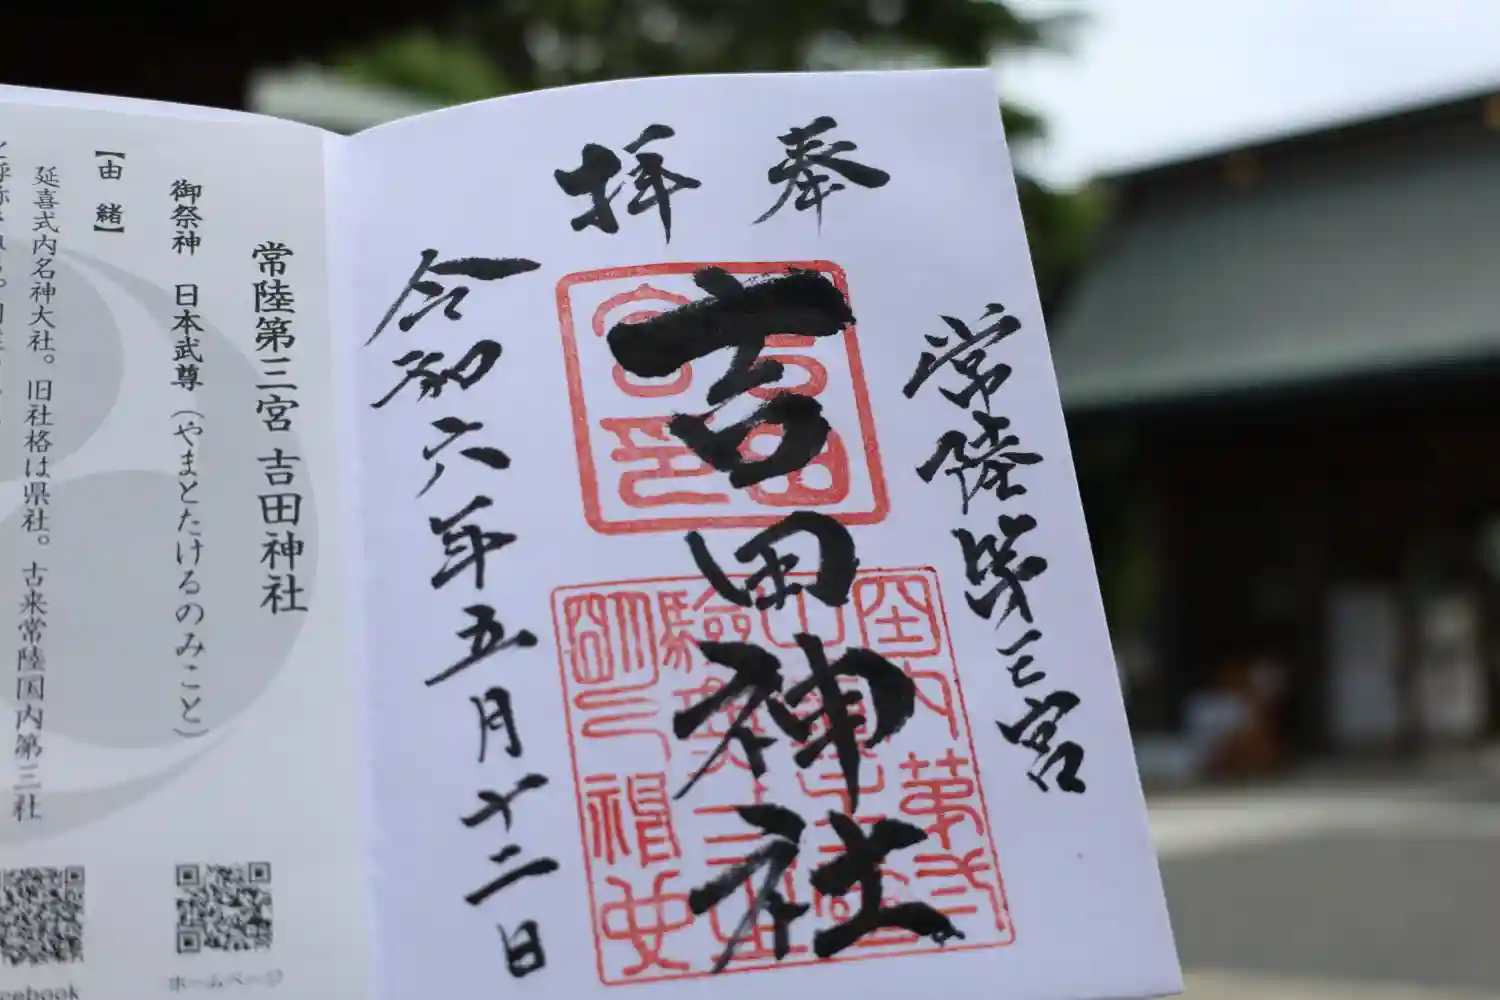 奉拝
常陸第三宮
吉田神社
令和六年五月十二日
常陸第三宮 吉田神社
御祭神 日本武尊（やまとたけるのみこと）
【由緒】
延喜式内名神大社。旧社格は県社。古来常陸国内第三社
ホームページ
cebook